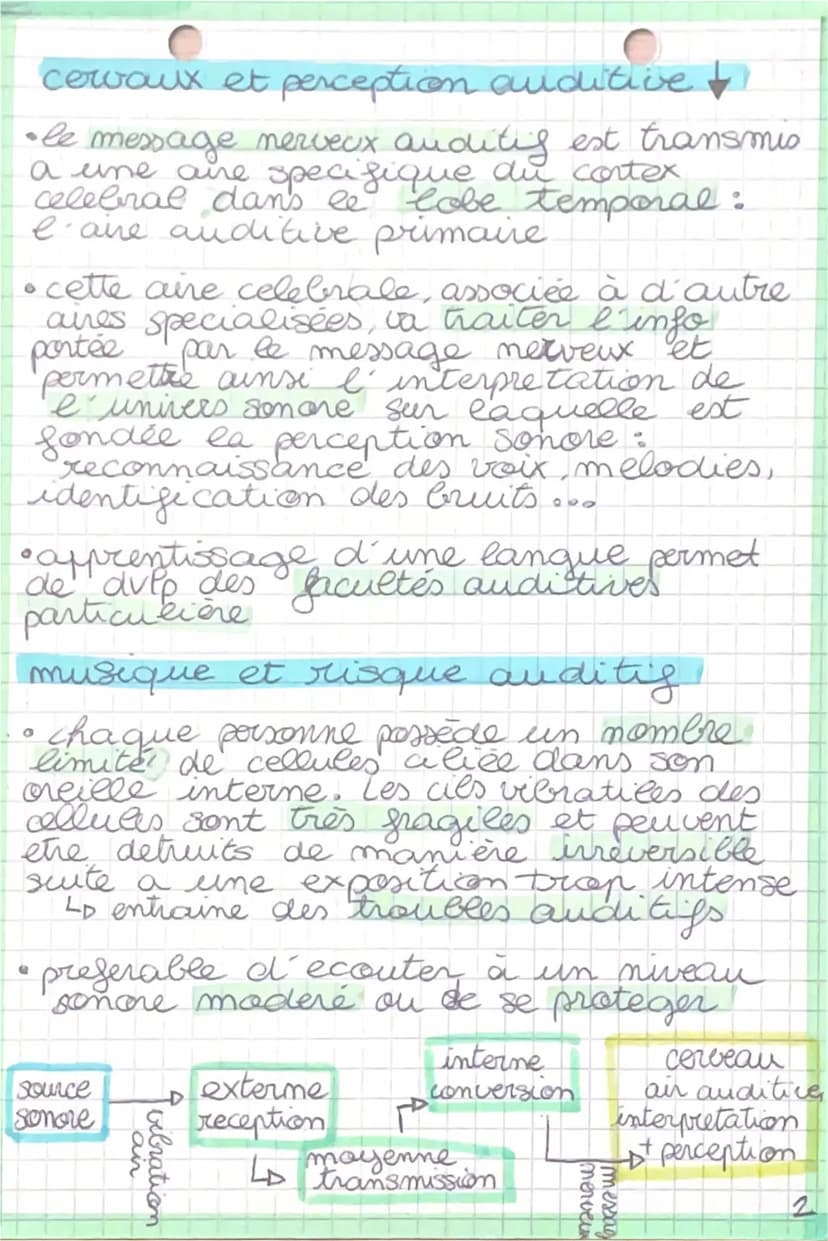 cervaux et perception auditive ↓
• le message nerveux auditif est transmis
a une aire specifique du cortex
celebral dans le lobe temporal :
l'aire auditive primaire
• cette aire celebrale, associée à d'autre
aires specialisées, va traiter l'info
portée par le message nerveux et
permettre ainsi l'interpretation de
l'univers sonore sur laquelle est
fondée la perception sonore :
reconnaissance des voix, melodies,
identification des bruits ...
• apprentissage d'une langue permet
de dvlp des facultés auditives
particulière
musique et risque auditif
• chaque personne possède un nombre
limité de cellules ciliée dans son
oreille interne. Les cils vibratiles des
cellules sont très fragiles et peuvent
etre detruits de manière irreversible
suite a une exposition trop intense
↳ entraine des troubles auditifs
• preferable d'ecouter à un niveau
sonore moderé ou de se proteger
source
sonore
vibration
air
externe
reception
moyenne
transmission
interne
conversion
message
nerveux
cerveau
air auditive
interpretation
+ perception
2